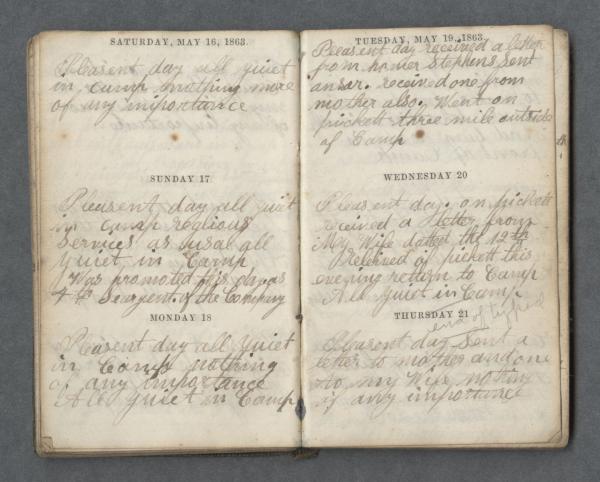 SATURDAY, MAY 16, 1863.
Pleasent day all quiet
in camp nothing more
of any importance
SUNDAY 17
Pleasent day all quiet
in camp reglious
Services as usal all
quiet in Camp
Was promoted this day as
4th Seargent of the Company
MONDAY 18
Pleasent day all quiet
in Camp nothing
of any importance
All quiet in Camp
TUESDAY, MAY 19, 1863.
Pleasent day received a letter
from homer Stephens Sent
ansar. received one from
mother also, Went on
pickett three mile outside
of Camp
WEDNESDAY 20
Pleasent day. on pickett
received a letter from
My Wife dated the 12th
Releived of pickett this
evening return to Camp
All quiet in Camp
end of typed
THURSDAY 21
Pleasent day Sent a
letter to mother and one
to my Wife nothing
of any importance